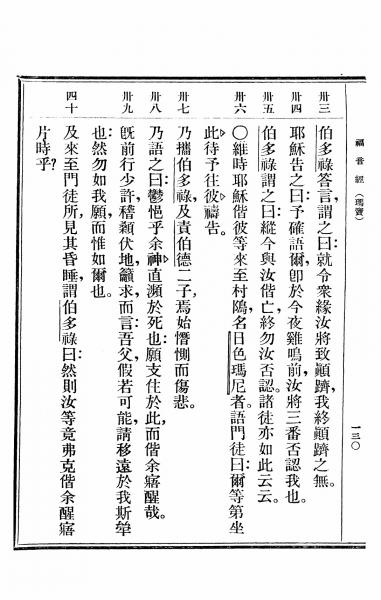 福音經 (瑪竇)
一三〇
卅三 伯多祿答言,謂之曰:就令衆緣汝將致顚躋,我終顚躋之無。
卅四 耶穌告之曰:予確語爾,卽於今夜雞鳴前,汝將三番否認我也。
卅五 伯多祿謂之曰:縱今與汝偕亡,終勿汝否認。諸徒亦如此云云。
卅六 〇維時耶穌偕彼等來至村隝,名日色瑪尼者。語門徒曰:爾等第坐
此待予往彼禱吿。
卅七 乃攜伯多祿,及責伯德二子,焉始懵惻而傷悲。
卅八 乃語之曰:鬱悒乎余神,直瀕於死也!願支住於此,而偕余寤醒哉。
卅九 旣前行少許,稽顙伏地,籲求而言:吾父,假若可能,請移遠於我斯犖
也:然勿如我願,而惟如爾也。
四十 及來至門徒所,見其昏睡,謂伯多祿曰:然則汝等竟弗克偕余醒寤
片時乎?